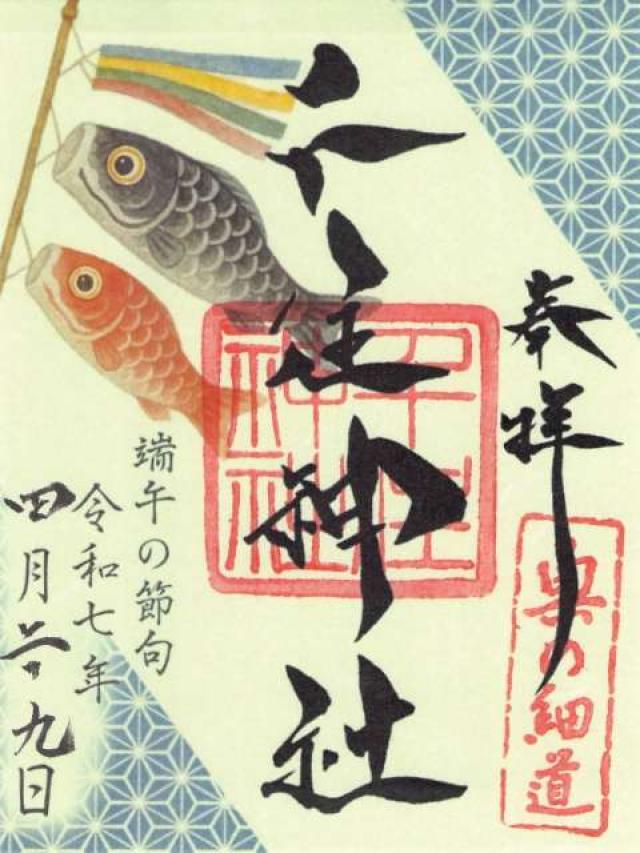 奉拝
奥の細道
千住神社
千住神社
端午の節句
令和七年
四月二十九日